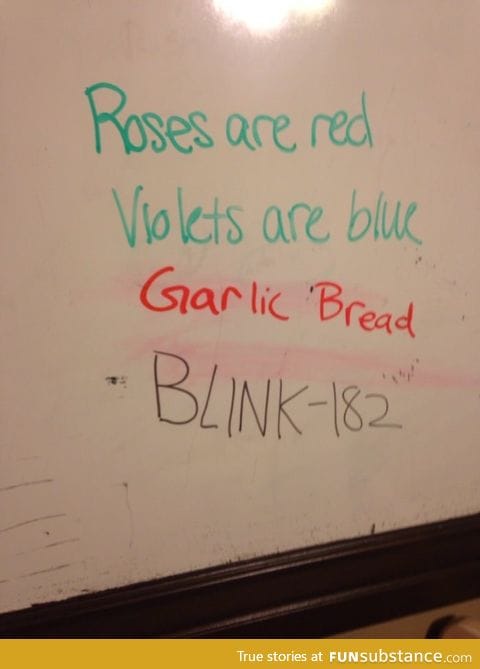 Roses are red
Violets are blue
Garlic Bread
BLINK-182
True stories at FUNsubstance.com